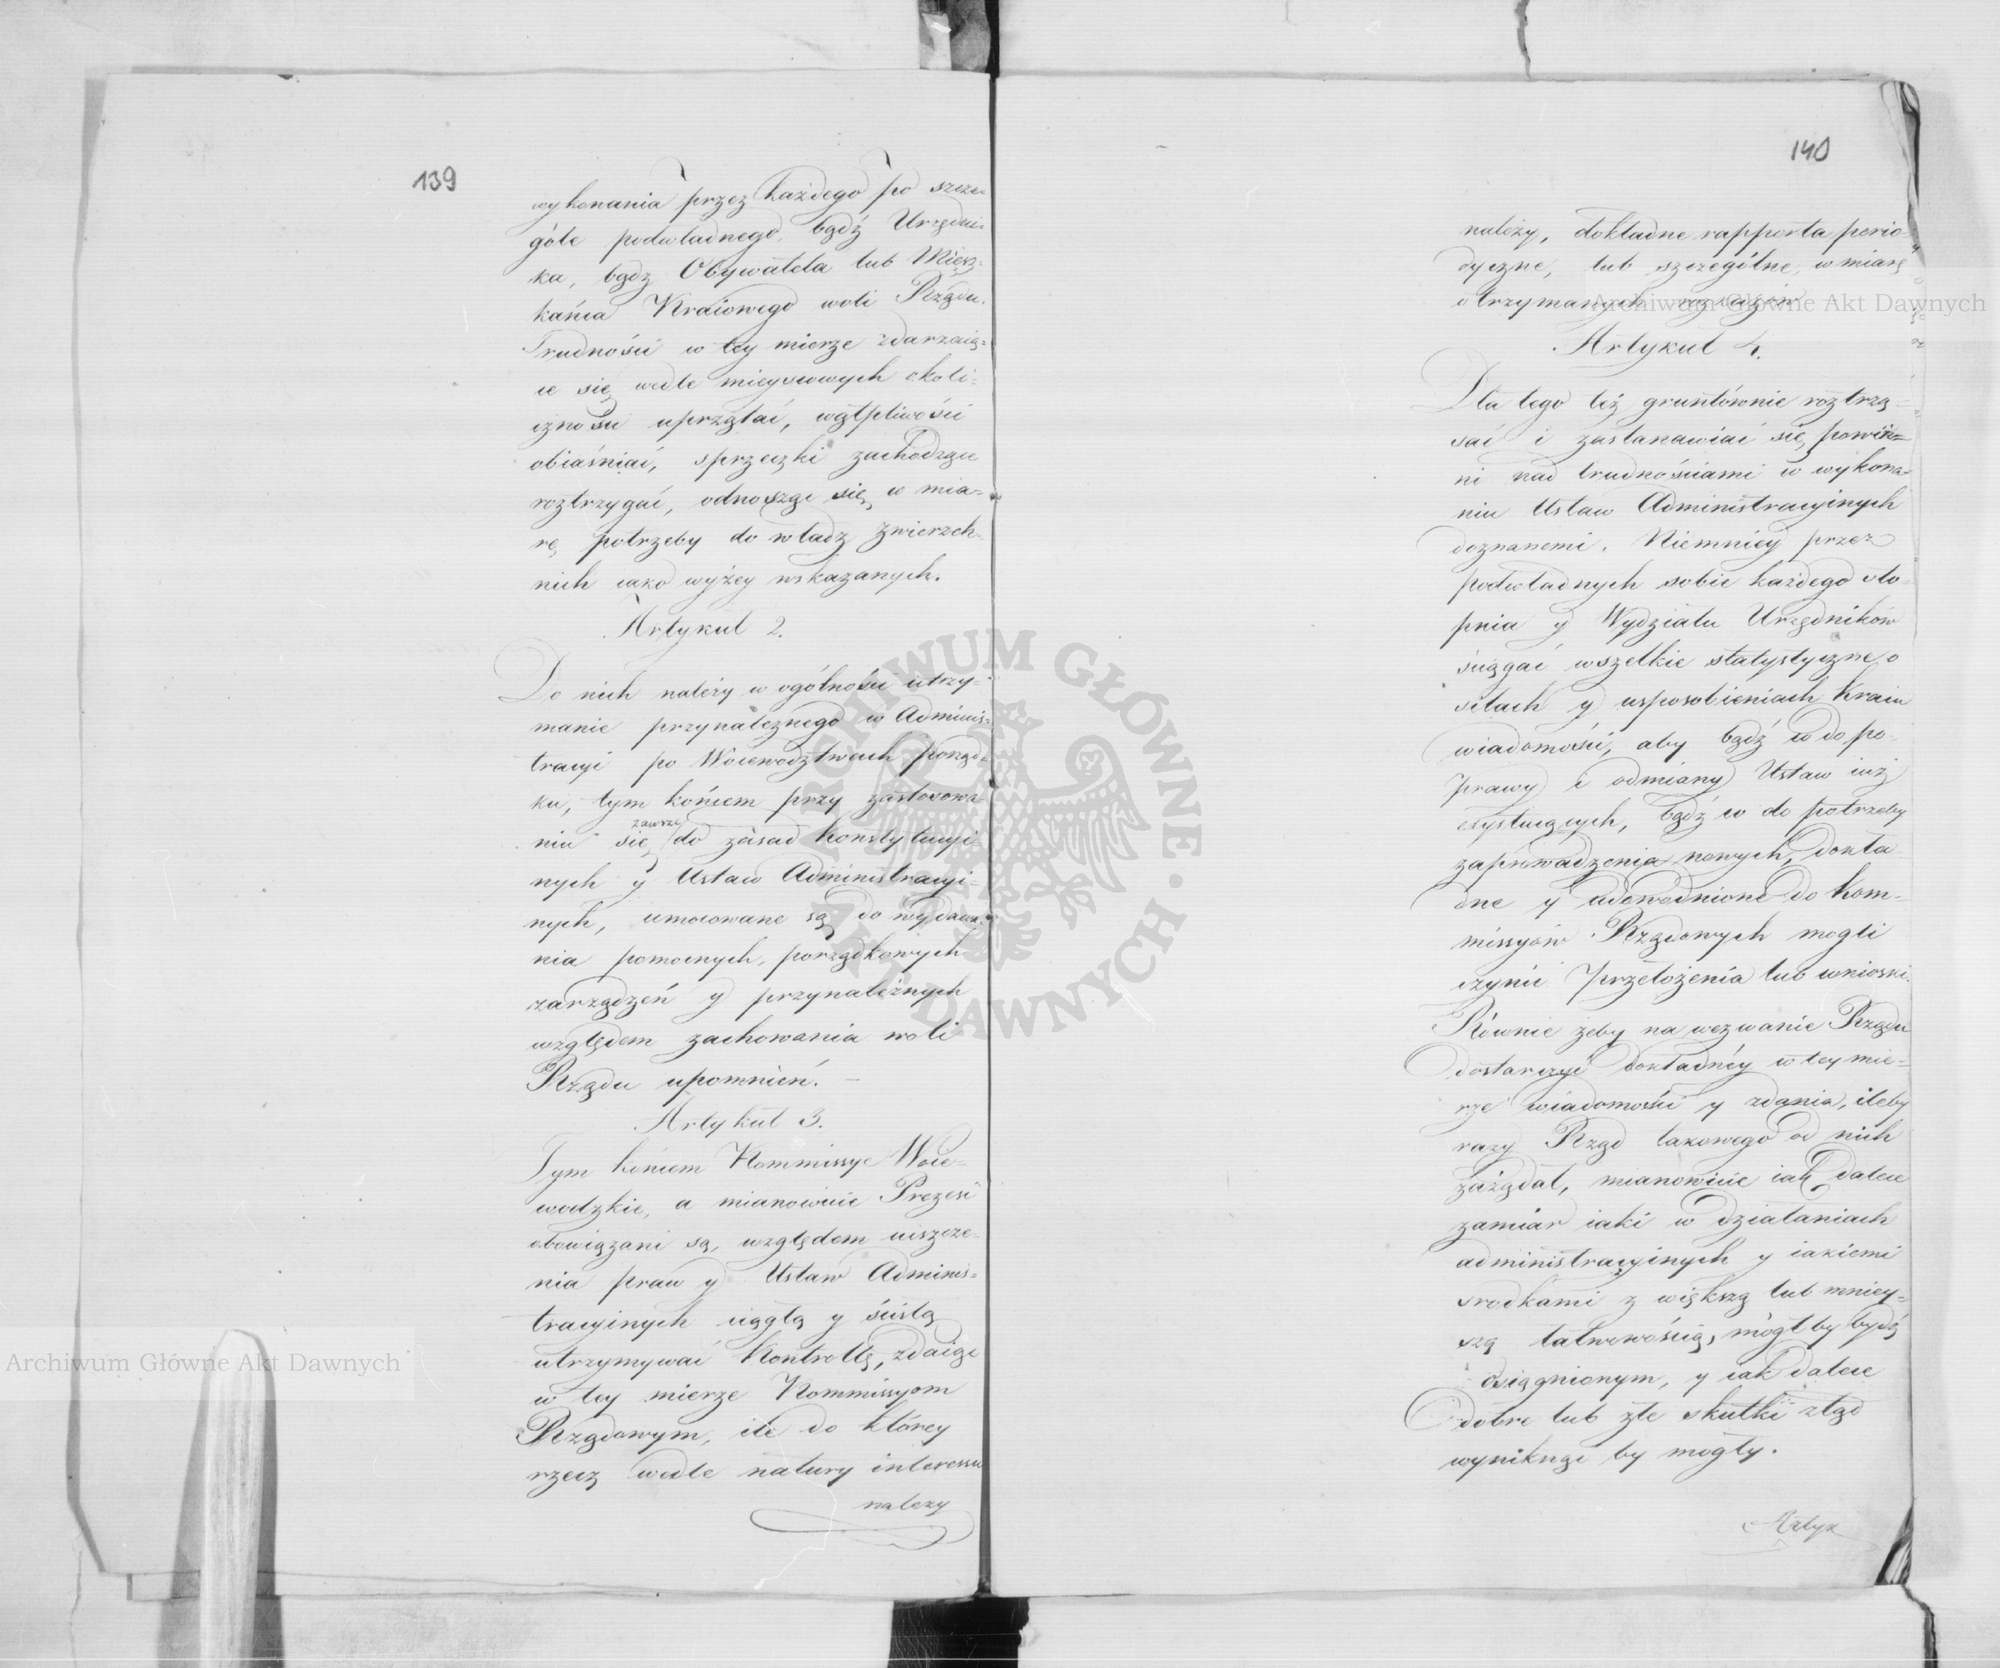 139
wykonania przez każdego po szcze-
góle podwładnego, bądź Urzędni-
ka, bądz Obywatela lub Miesz-
kańca Kraiowego woli Rządu.
Trudności w tey mierze zdarzaią-
ce się wedle mieyscowych okoli-
czności uprzątać, wątpliwości
obiaśniać, sprzeczki zachodzące
roztrzygać, odnosząc się w mia-
rę potrzeby do władz zwierzch-
nich iako wyżey wskazanych.
Artykuł 2.
Do nich należy w ogólności utrzy-
manie przynależnego w Adminis-
tracyi po Woiewodztwach porząd-
ku, tym końcem przy zastosowa-
niu się zawsze do zasad konstytucyi-
nych y Ustaw Administracyi-
nych, umocowane są do wydawa-
nia pomocnych, porządkowych
zarządzeń y przynależnych
względem zachowania woli
Rządu upomnień. —
Artykuł 3.
Tym końcem Kommissye Woie-
wodzkie, a mianowicie Prezesi
obowiązani są, względem uiszcze-
nia praw y Ustaw Adminis-
tracyinych ciągłą y ścisłą
utrzymywać Kontrollę, zdaiąc
w tey mierze Kommissyom
Rządowym, ile do którey
rzecz wedle natury interessu
nalezy
140
należy, dokładne rapporta perio-
dyczne, lub szczególne, w miarę
otrzymanych
Artykuł 4.
Dla tego też gruntównie roztrzą-
sać i zastanawiać się powin-
ni nad trudnościami w wykona-
niu Ustaw Administracyinych
doznanemi. Niemniey przez
podwładnych sobie każdego sto-
pnia y Wydziału Urzędników
ściągać wszelkie statystyczne o
siłach y usposobieniach Kraiu
wiadomości, aby bądź co do po-
prawy i odmiany Ustaw iuż
exystuiących, bądź co do potrzeby
zaprowadzenia nowych, dokła-
dne y udowodnione do Kom-
missyów Rządowych mogli
czynić przełożenia lub wnioski.
Równie żeby na wezwanie Rządu
dostarczyć dokładnéy w tey mie-
rze wiadomości y zdania, ileby
razy Rząd takowego od nich
zażądał, mianowicie iak dalece
zamiar iaki w działaniach
administracyinych y iakiemi
srodkami z większą lub mniey-
szą łatwowością, mógłby bydź
osiągnionym, y iak dalece
dobre lub złe skutki ztąd
wyniknąć by mogły.
Artyk
Archiwum Główne Akt Dawnych
Archiwum Główne Akt Dawnych
ARCHIWUM GŁÓWNE · AKT DAWNYCH ·